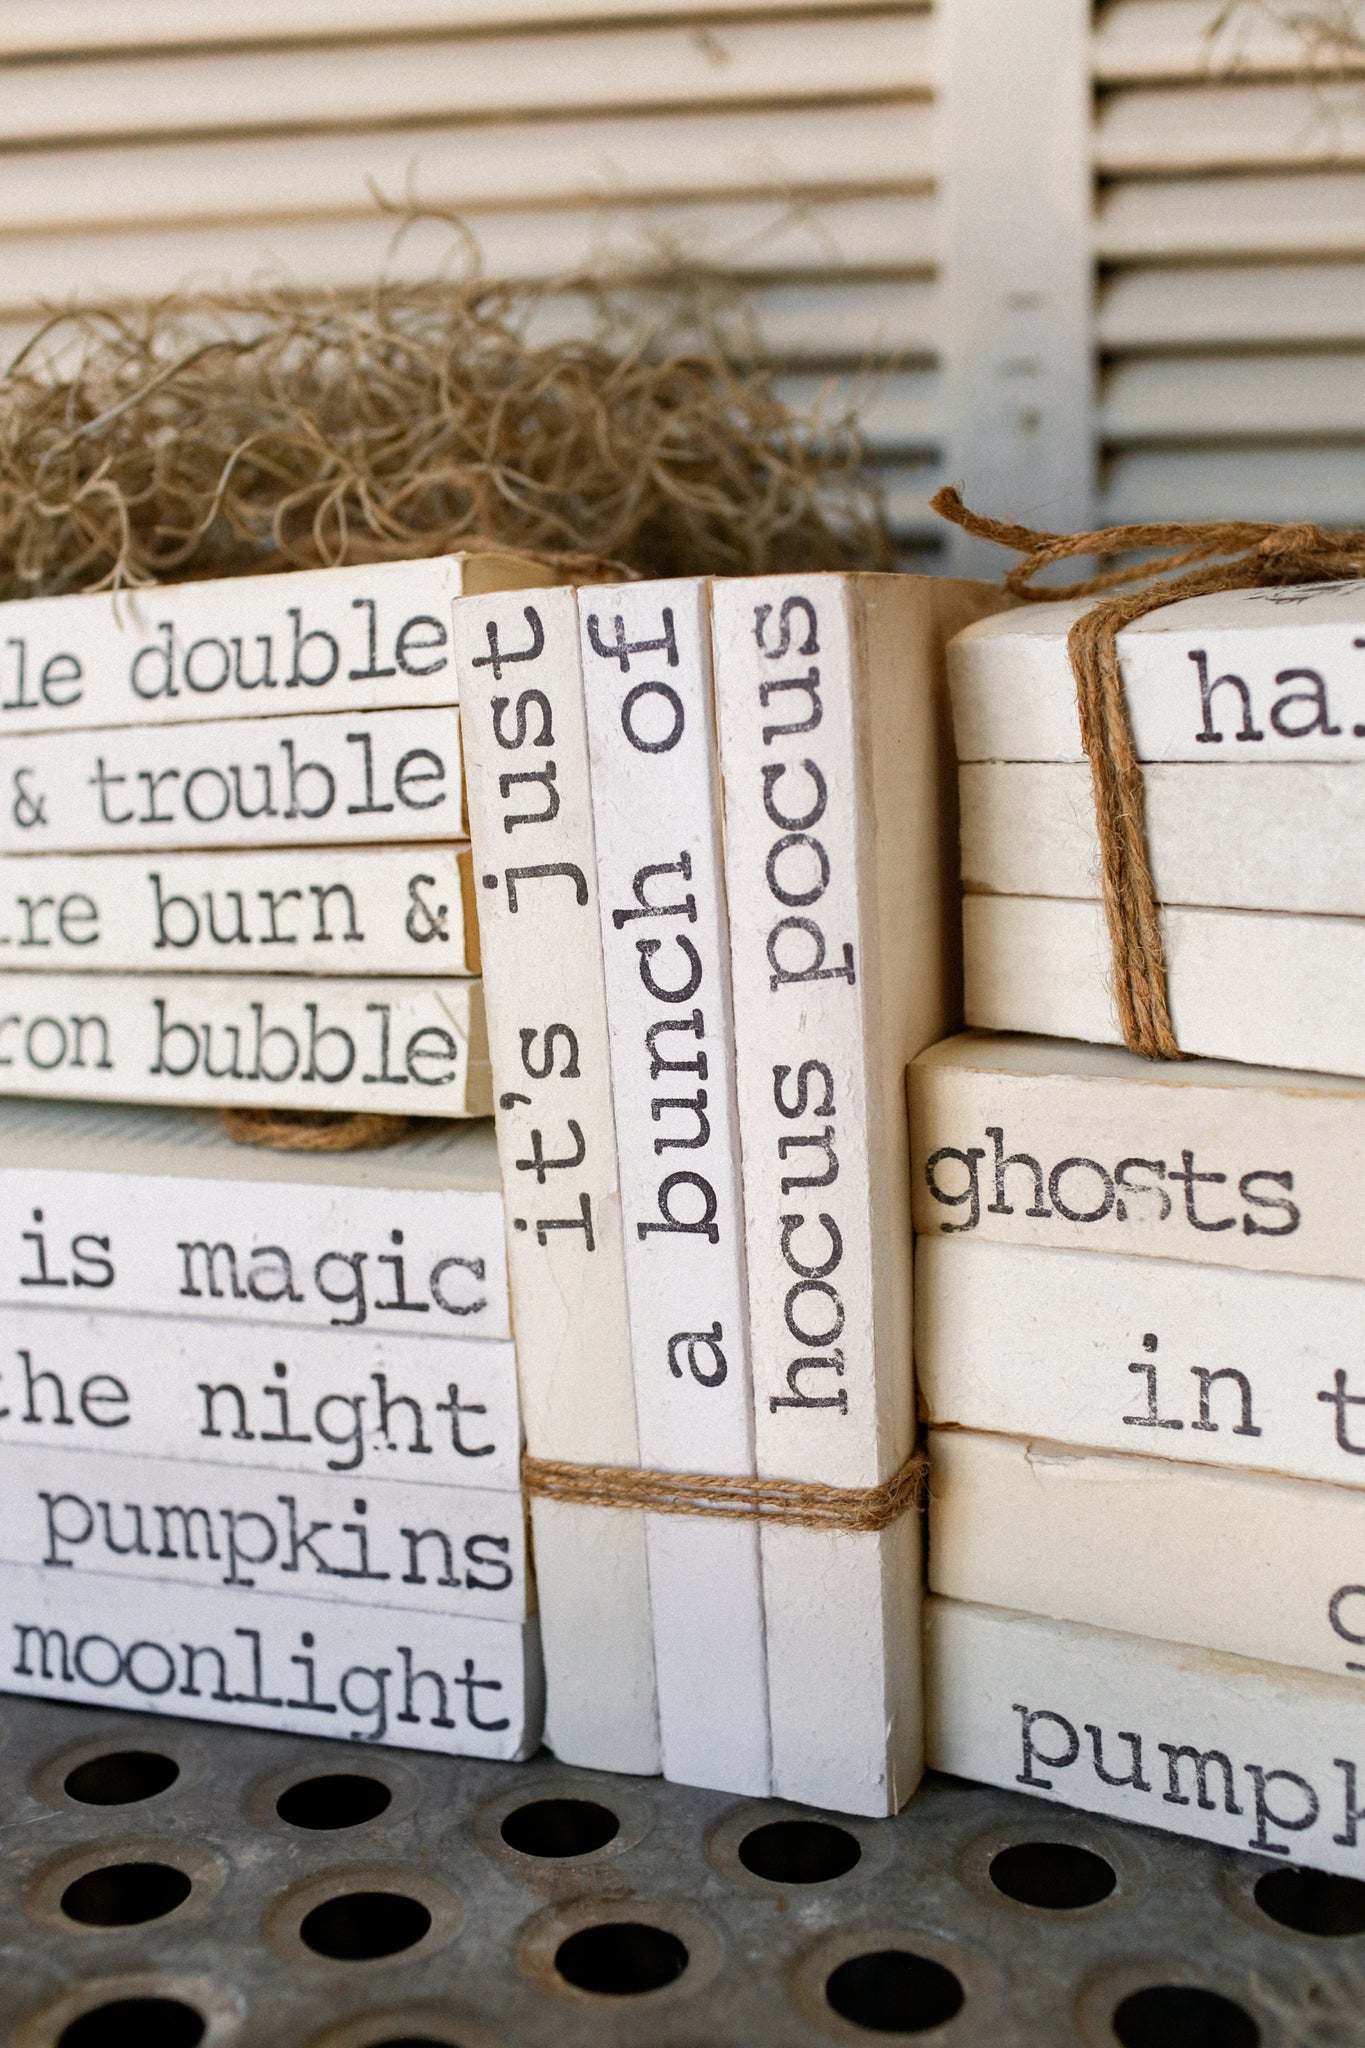 le double
& trouble
re burn &
ron bubble
is magic
the night
pumpkins
moonlight
it's just
a bunch of
hocus pocus
ha
ghosts
in t
g
pumpk